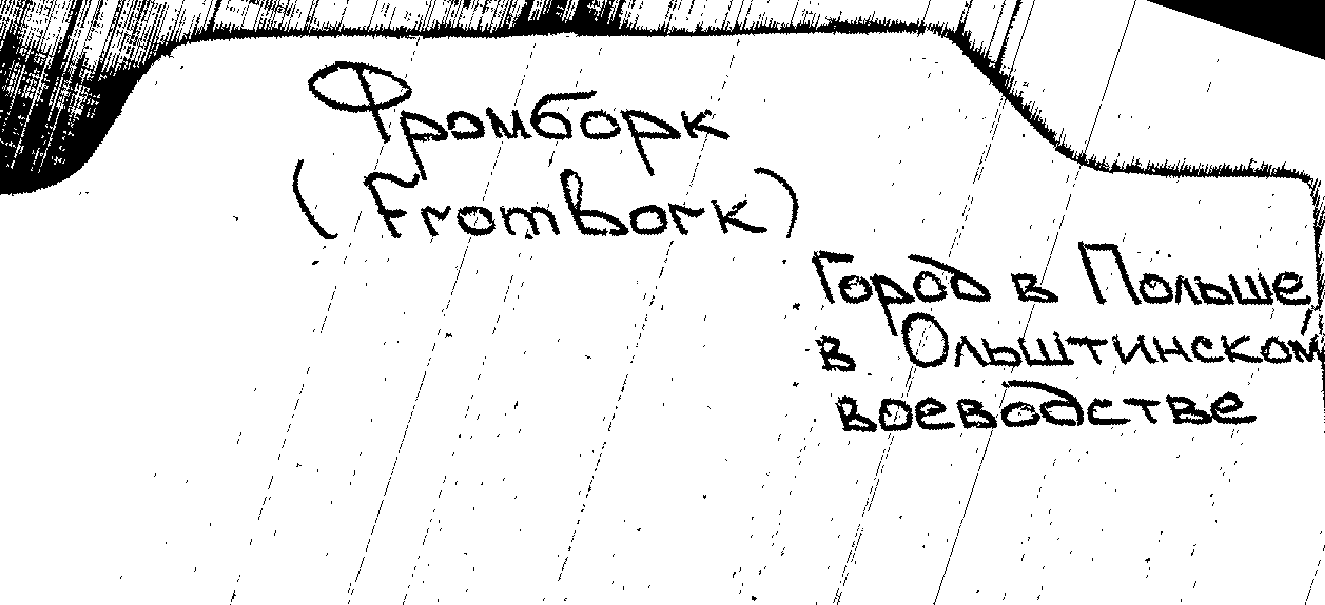 Фромборк
(Frombork)
Город в Польше,
в Ольштинском
воеводстве